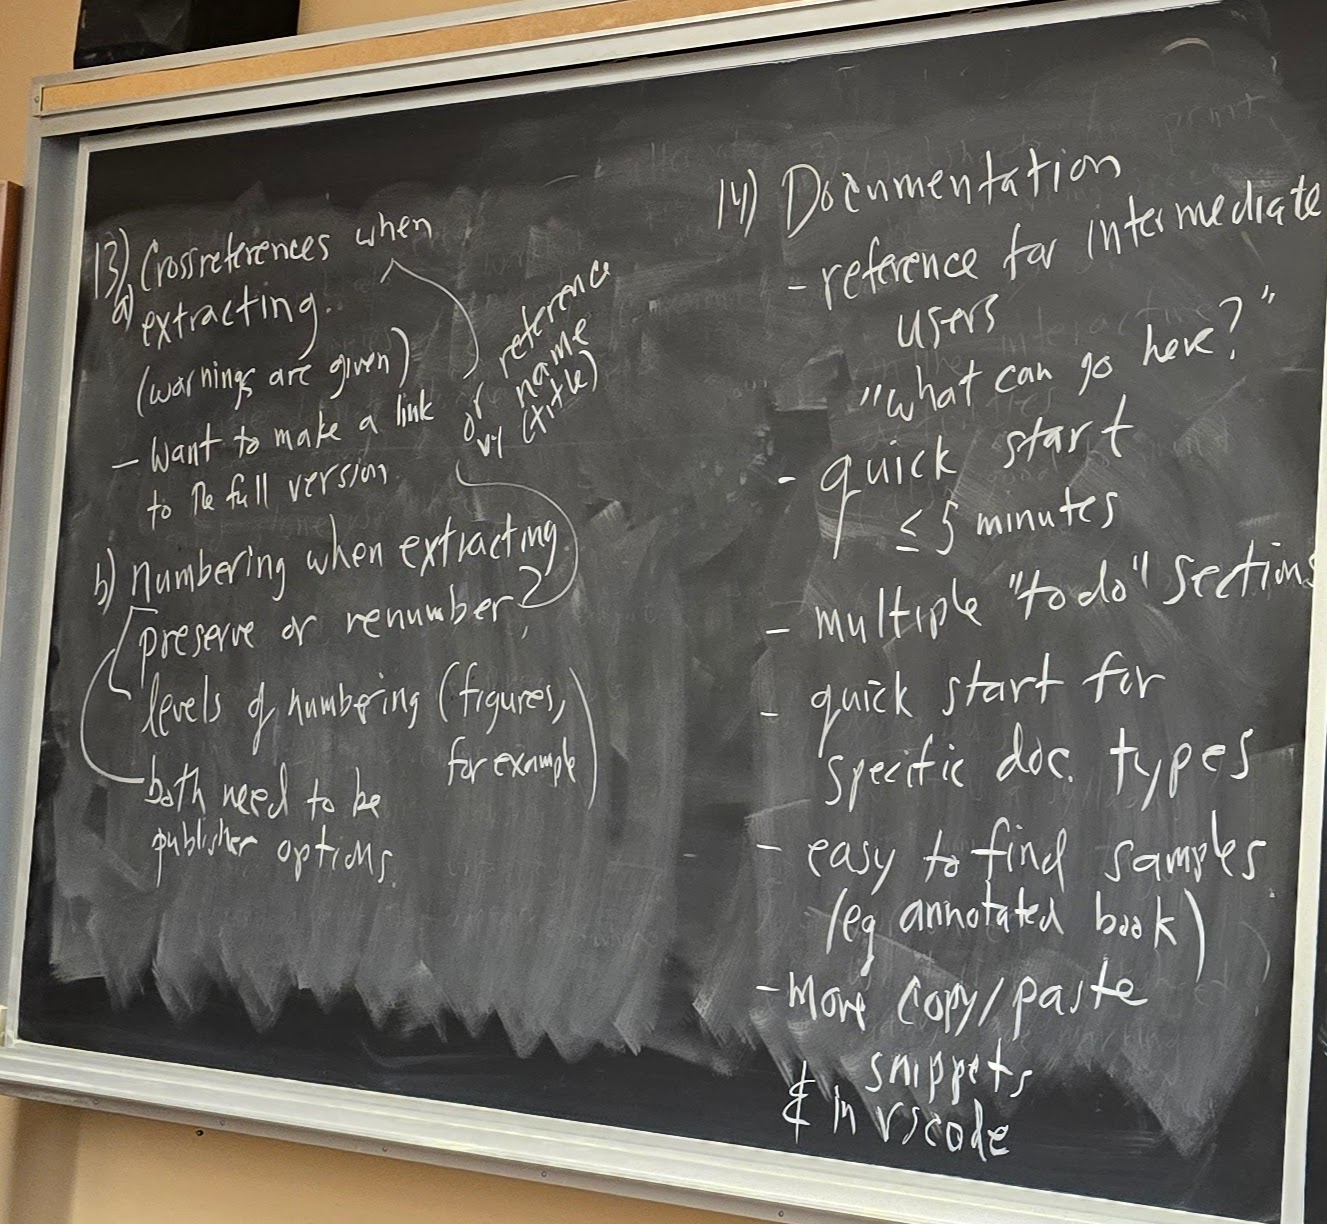 13) Crossreferences when
a) extracting.
(warnings are given)
- want to make a link
to the full version.
or reference
by name
(title)
b) numbering when extracting
preserve or renumber?
levels of numbering (figures,
for example)
both need to be
publisher options.
14) Documentation
- reference for intermediate
users
"what can go here?"
- quick start
≤ 5 minutes
- multiple "to do" sections
- quick start for
specific doc. types
- easy to find samples
(eg annotated book)
- more copy/paste
snippets
& in vscode